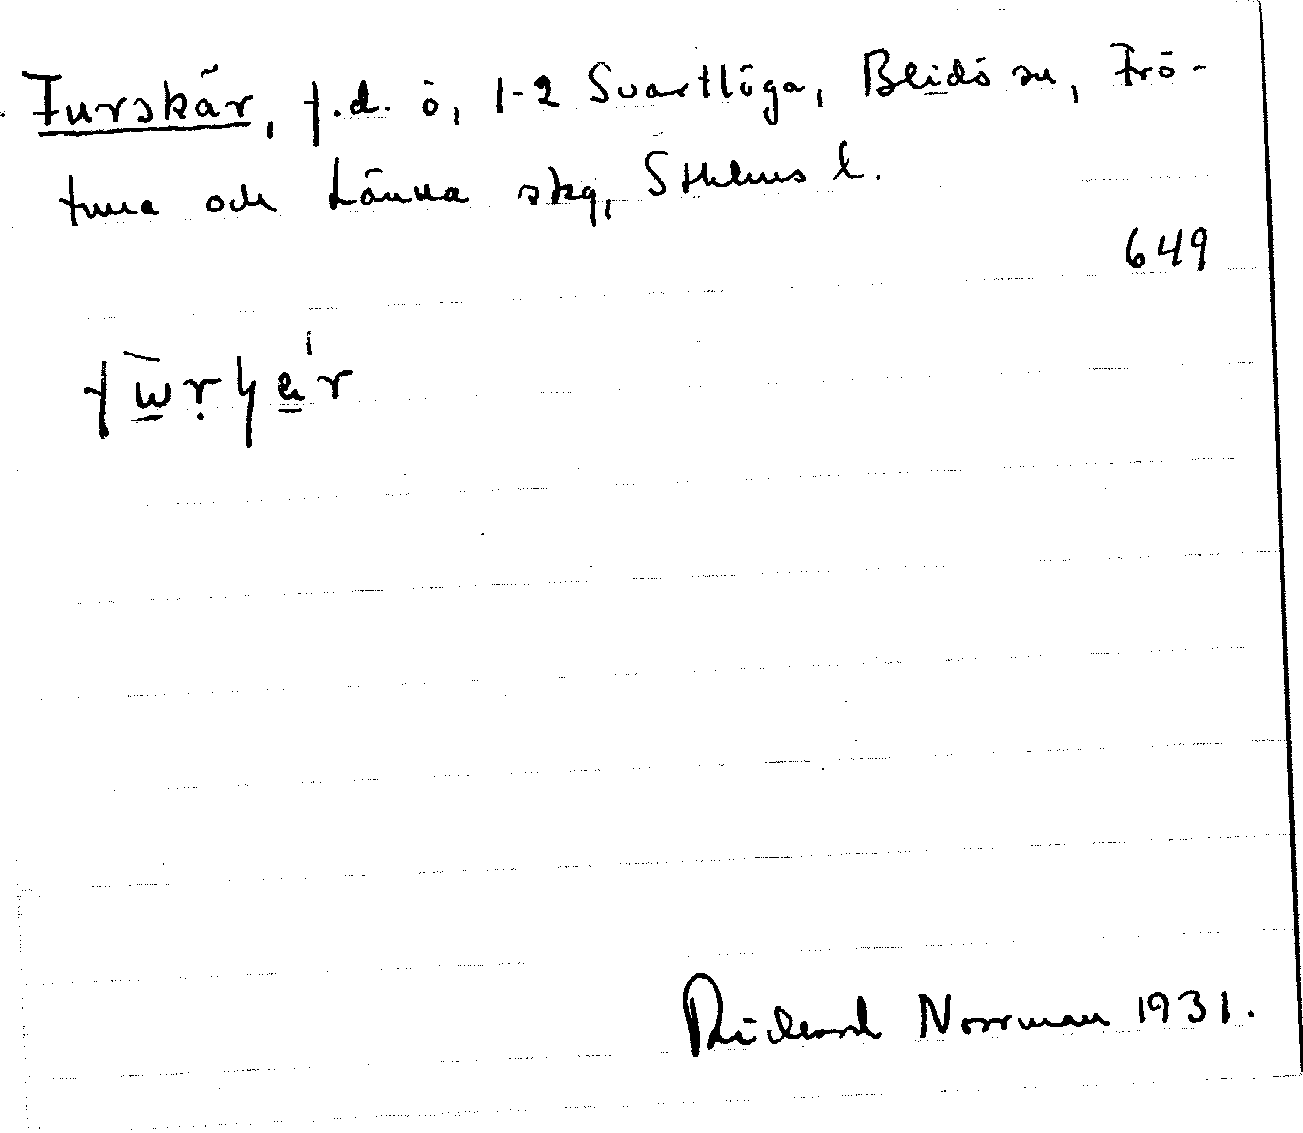 Furskär, f.d. ö, 1-2 Svartlöga, Blidö sn, Frö-
tuna och Länna skg, Sthlms l.
649
Rickard Norrman 1931.